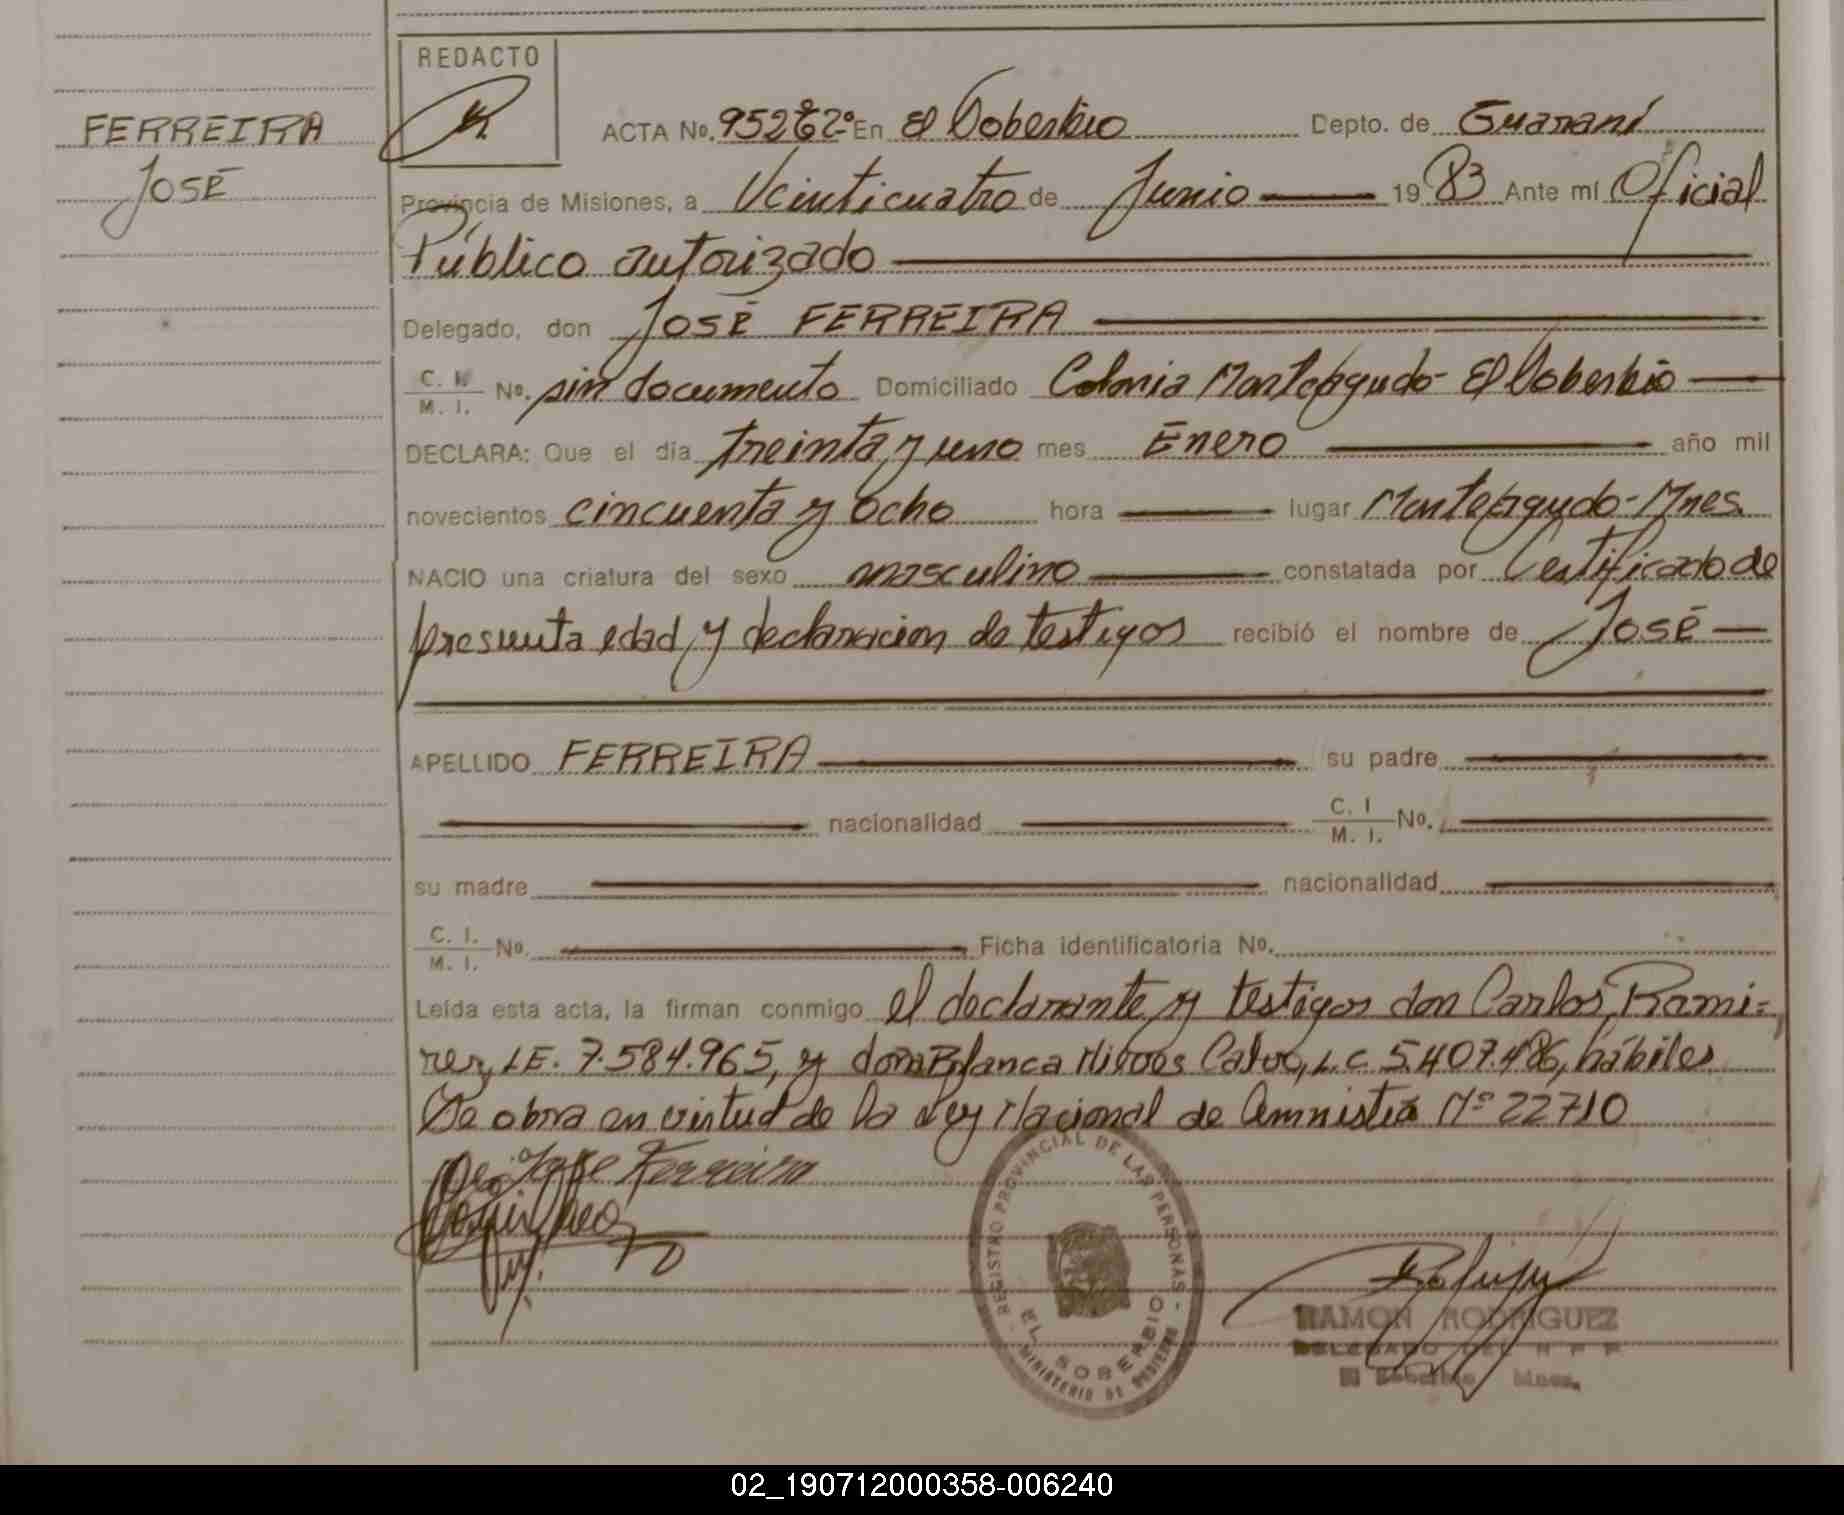 REDACTO
FERREIRA
JOSÉ
ACTA No. 952 En El Soberbio Depto. de Guaraní
Provincia de Misiones, a Veinticuatro de Junio 19 83 Ante mí Oficial
Público autorizado
Delegado, don JOSÉ FERREIRA
C. I. M. I. No. sin documento Domiciliado Colonia Monteagudo- El Soberbio
DECLARA: Que el día treinta y uno mes Enero año mil
novecientos cincuenta y ocho hora lugar Monteagudo-Mnes.
NACIO una criatura del sexo masculino constatada por Certificado de
presunta edad y declaracion de testigos recibió el nombre de JOSÉ
APELLIDO FERREIRA su padre
nacionalidad C. I M. I. No.
su madre nacionalidad
C. I. M. I. No. Ficha identificatoria No.
Leída esta acta, la firman conmigo el declarante y testigos don Carlos Rami=
rez, L.E. 7.584.965, y doña Blanca Nieves Calvo, L.C. 5.407.486, hábiles
Se obra en virtud de la Ley Nacional de Amnistía Nº 22710
Jose Ferreira
REGISTRO PROVINCIAL DE LAS PERSONAS -
EL SOBERBIO
MINISTERIO DE GOBIERNO
RAMON RODRIGUEZ
DELEGADO DEL R P P
El Soberbio Mnes.
02_190712000358-006240